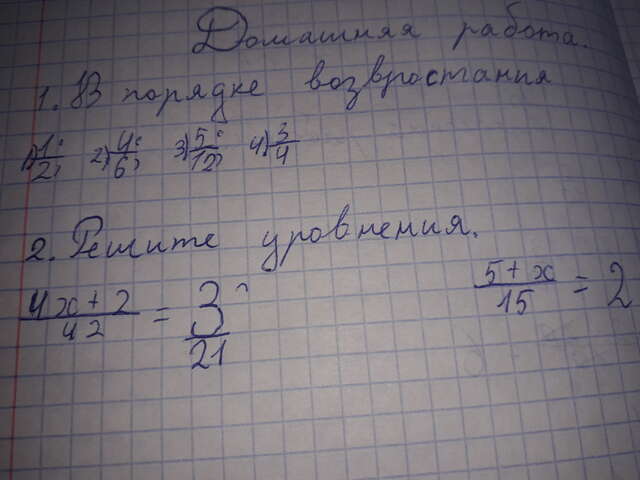 Домашняя работа.
1. В порядке возвростания
1) 1/2; 2) 4/6; 3) 5/12; 4) 3/4
2. Решите уровнения.
(4x+2)/42 = 3/21 (5+x)/15 = 2